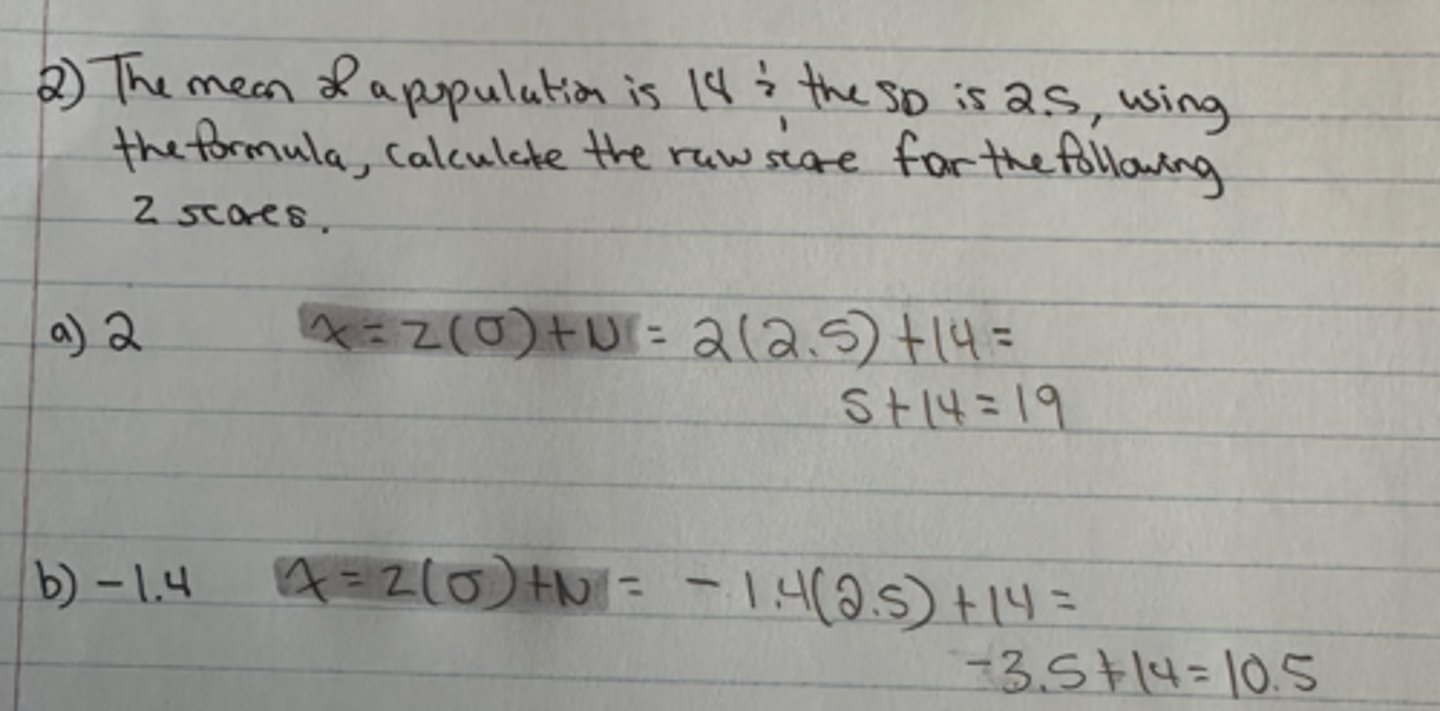 2) The mean of a population is 14 & the SD is 2.5, using
the formula, calculate the raw score for the following
z scores.
a) 2 x = z(σ) + μ = 2(2.5) + 14 =
5 + 14 = 19
b) -1.4 x = z(σ) + μ = -1.4(2.5) + 14 =
-3.5 + 14 = 10.5